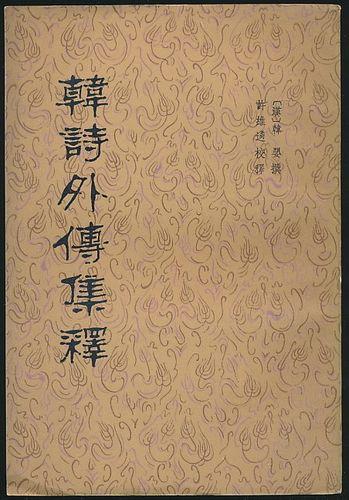 韓詩外傳集釋
〔漢〕韓 嬰撰
許維遹校釋